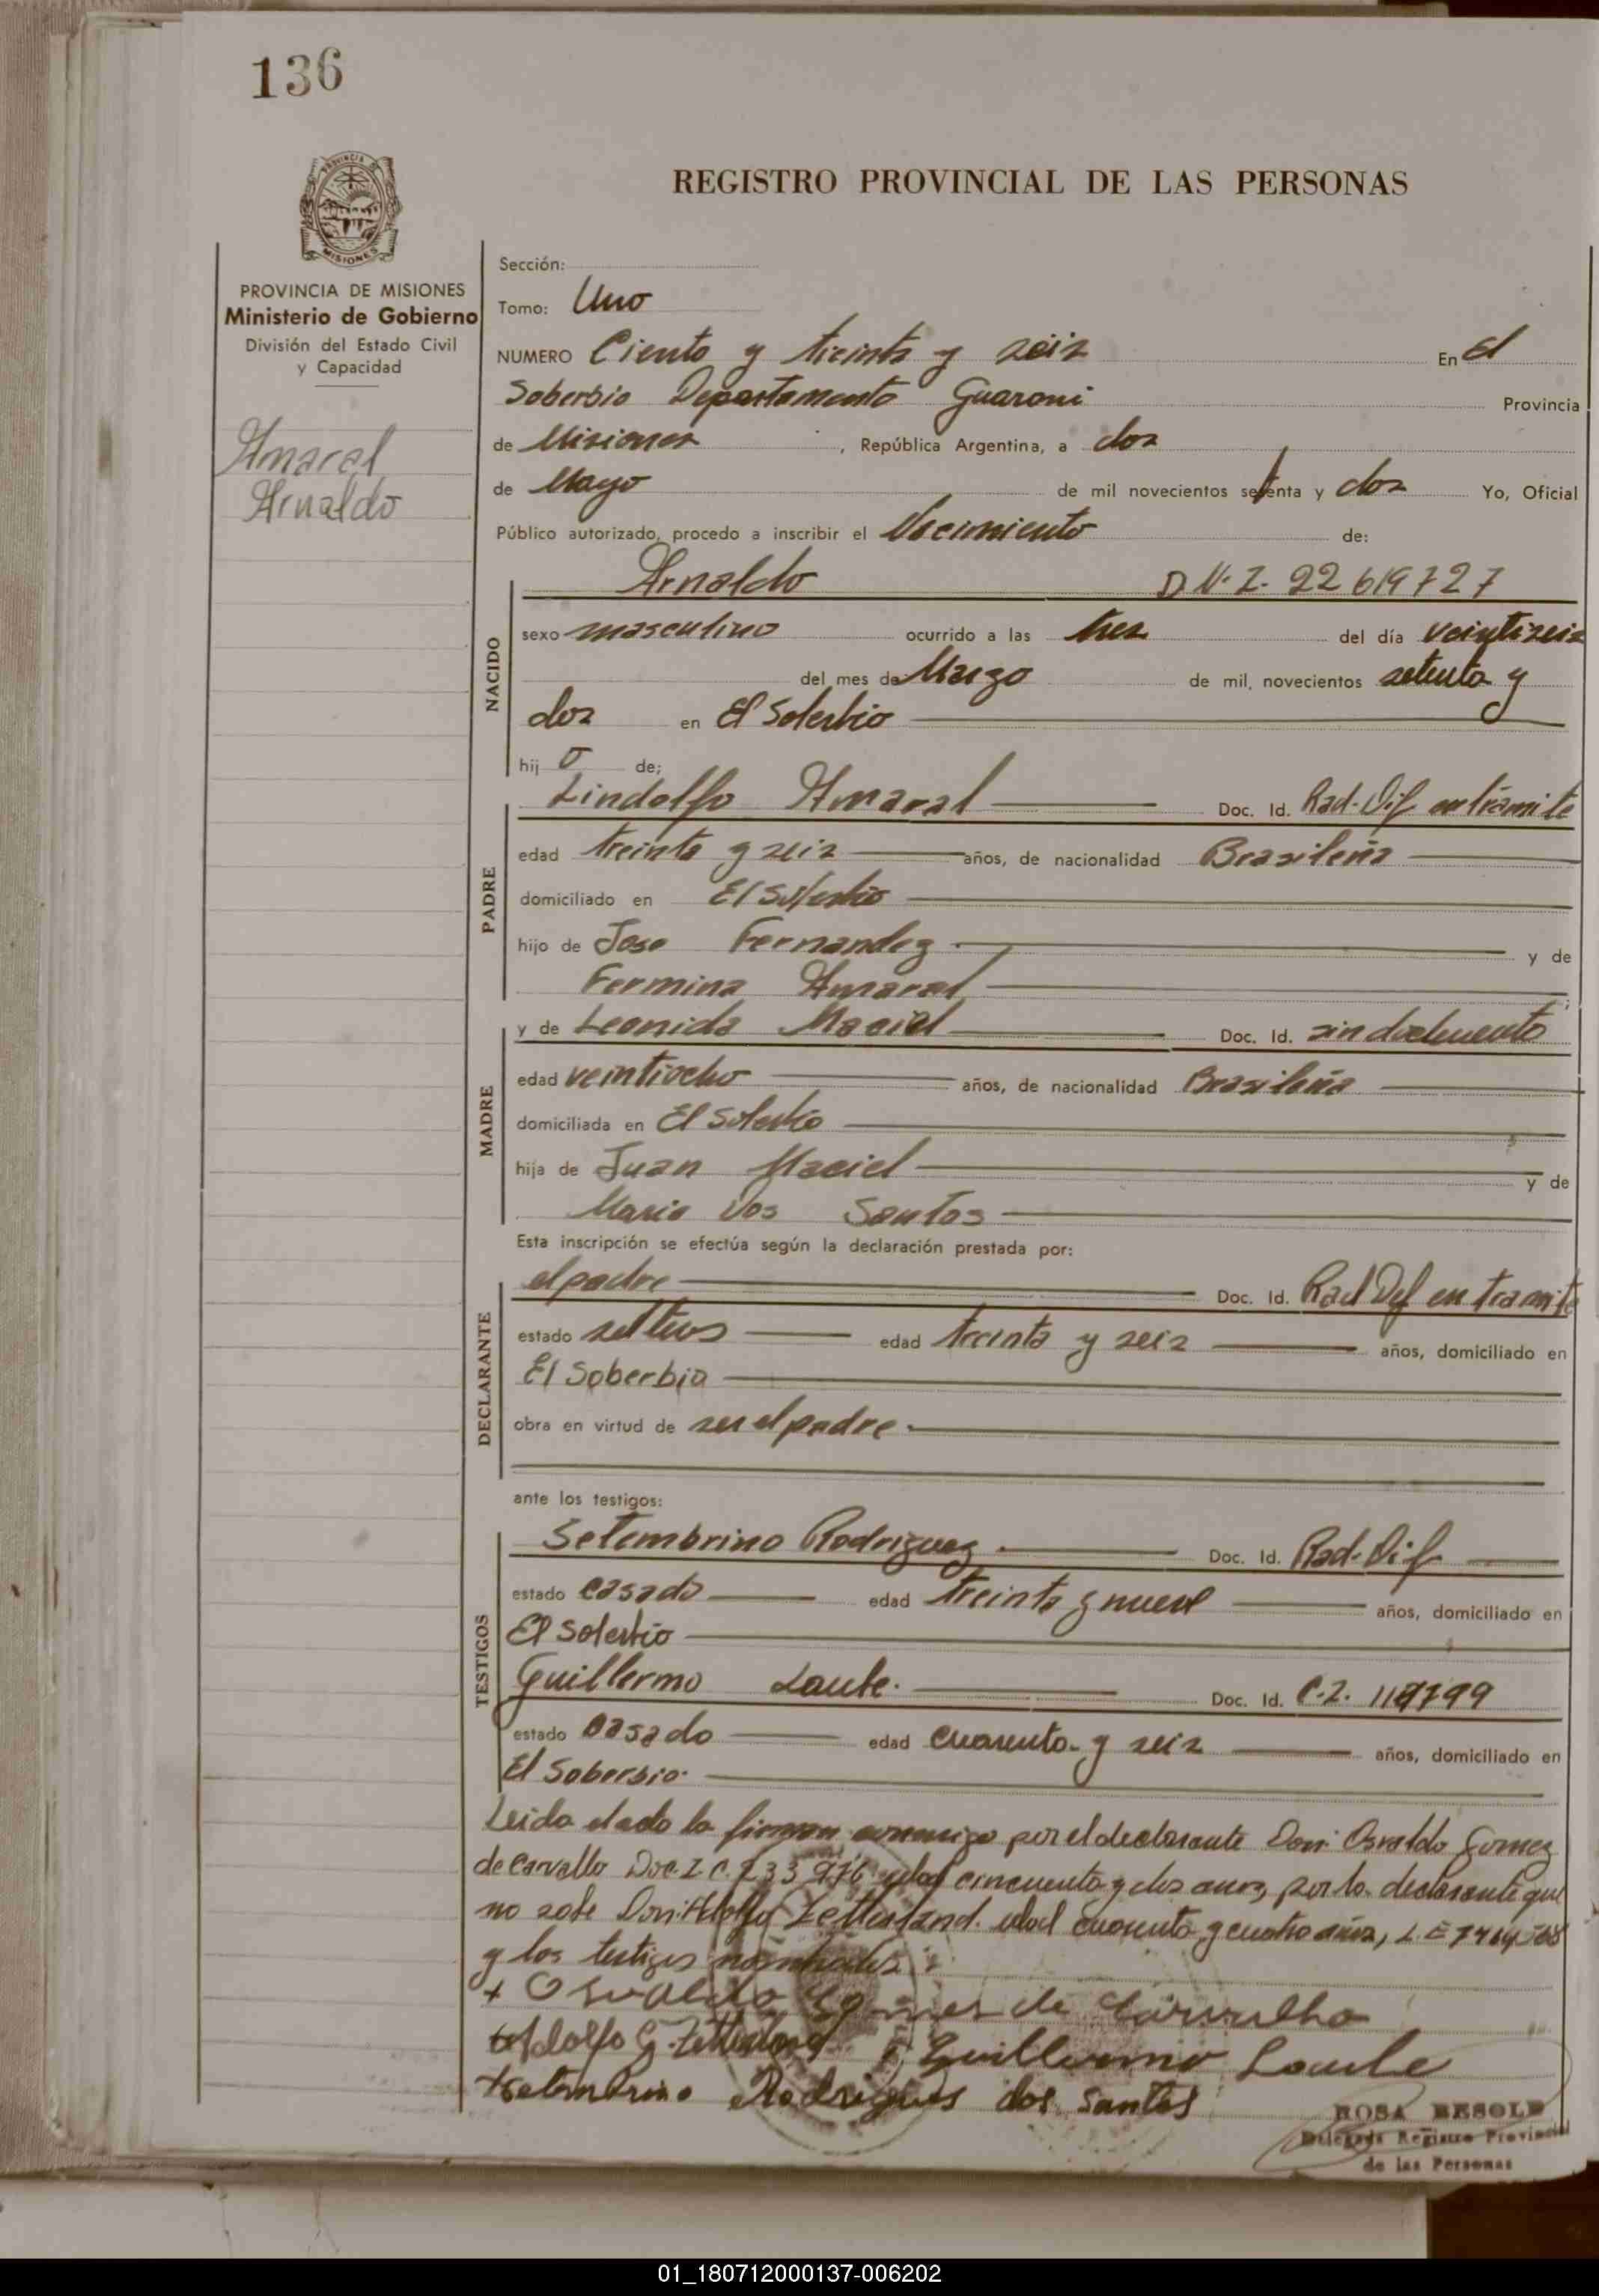 136
PROVINCIA DE
MISIONES
REGISTRO PROVINCIAL DE LAS PERSONAS
PROVINCIA DE MISIONES
Ministerio de Gobierno
División del Estado Civil
y Capacidad
Amaral
Arnaldo
Sección:
Tomo: Uno
NUMERO Ciento y treinta y seis En El
Soberbio Departamento Guarani Provincia
de Misiones, República Argentina, a dos
de Mayo de mil novecientos setenta y dos Yo, Oficial
Público autorizado, procedo a inscribir el Nacimiento de:
NACIDO
Arnaldo D.N.I. 22619727
sexo masculino ocurrido a las tres del día veintiseis
del mes de Marzo de mil, novecientos setenta y
dos en El Soberbio
hij o de;
PADRE
Lindolfo Amaral Doc. Id. Rad. Dif en tramite
edad treinta y seis años, de nacionalidad Brasileña
domiciliado en El Soberbio
hijo de Jose Fernandez y de
Fermina Amaral
MADRE
y de Leonida Maciel Doc. Id. sin documento
edad veintiocho años, de nacionalidad Brasileña
domiciliada en El Soberbio
hija de Juan Maciel y de
Maria Dos Santos
Esta inscripción se efectúa según la declaración prestada por:
DECLARANTE
el padre Doc. Id. Rad Def en tramite
estado edad treinta y seis años, domiciliado en
El Soberbio
obra en virtud de ser el padre
ante los testigos:
TESTIGOS
Setembrino Rodriguez Doc. Id. Rad. Dif
estado casado edad treinta y nueve años, domiciliado en
El Soberbio
Guillermo Laube. Doc. Id. C.I.
estado casado edad cuarenta y seis años, domiciliado en
El Soberbio.
Leida el acta la firman conmigo por el declarante Don: Osvaldo Gomez
de Carvallo Doc. I. C. edad cincuenta y dos años, por la declarante que
no sabe Don: Adolfo edad cuarenta y cuatro años, L.E
y los testigos nombrados
+ Osvaldo Gomes de Carvalho
Adolfo G. Guillermo Laube
Setembrino Rodrigues dos Santos
ROSA BESOLD
Delegada Registro Provincial
de las Personas
01_180712000137-006202